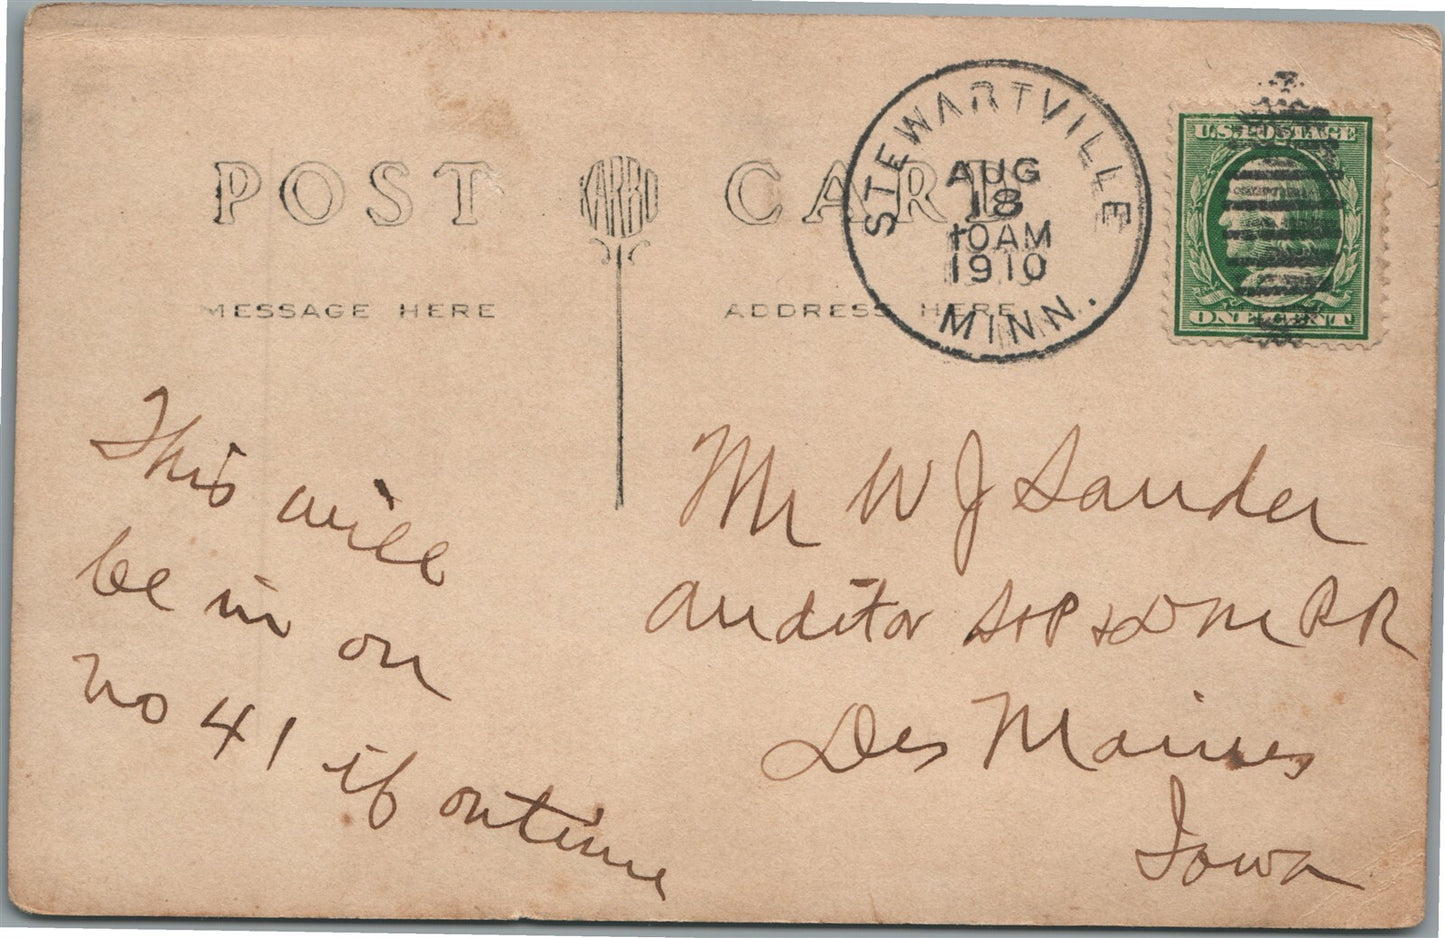 POST KARBO CARD
MESSAGE HERE
ADDRESS HERE
STEWARTVILLE
AUG
18
10AM
1910
MINN.
U.S. POSTAGE
ONE CENT
This will
be in on
No 41 if ontime
Mr W J Sander
Auditor StP & DM RR
Des Moines
Iowa